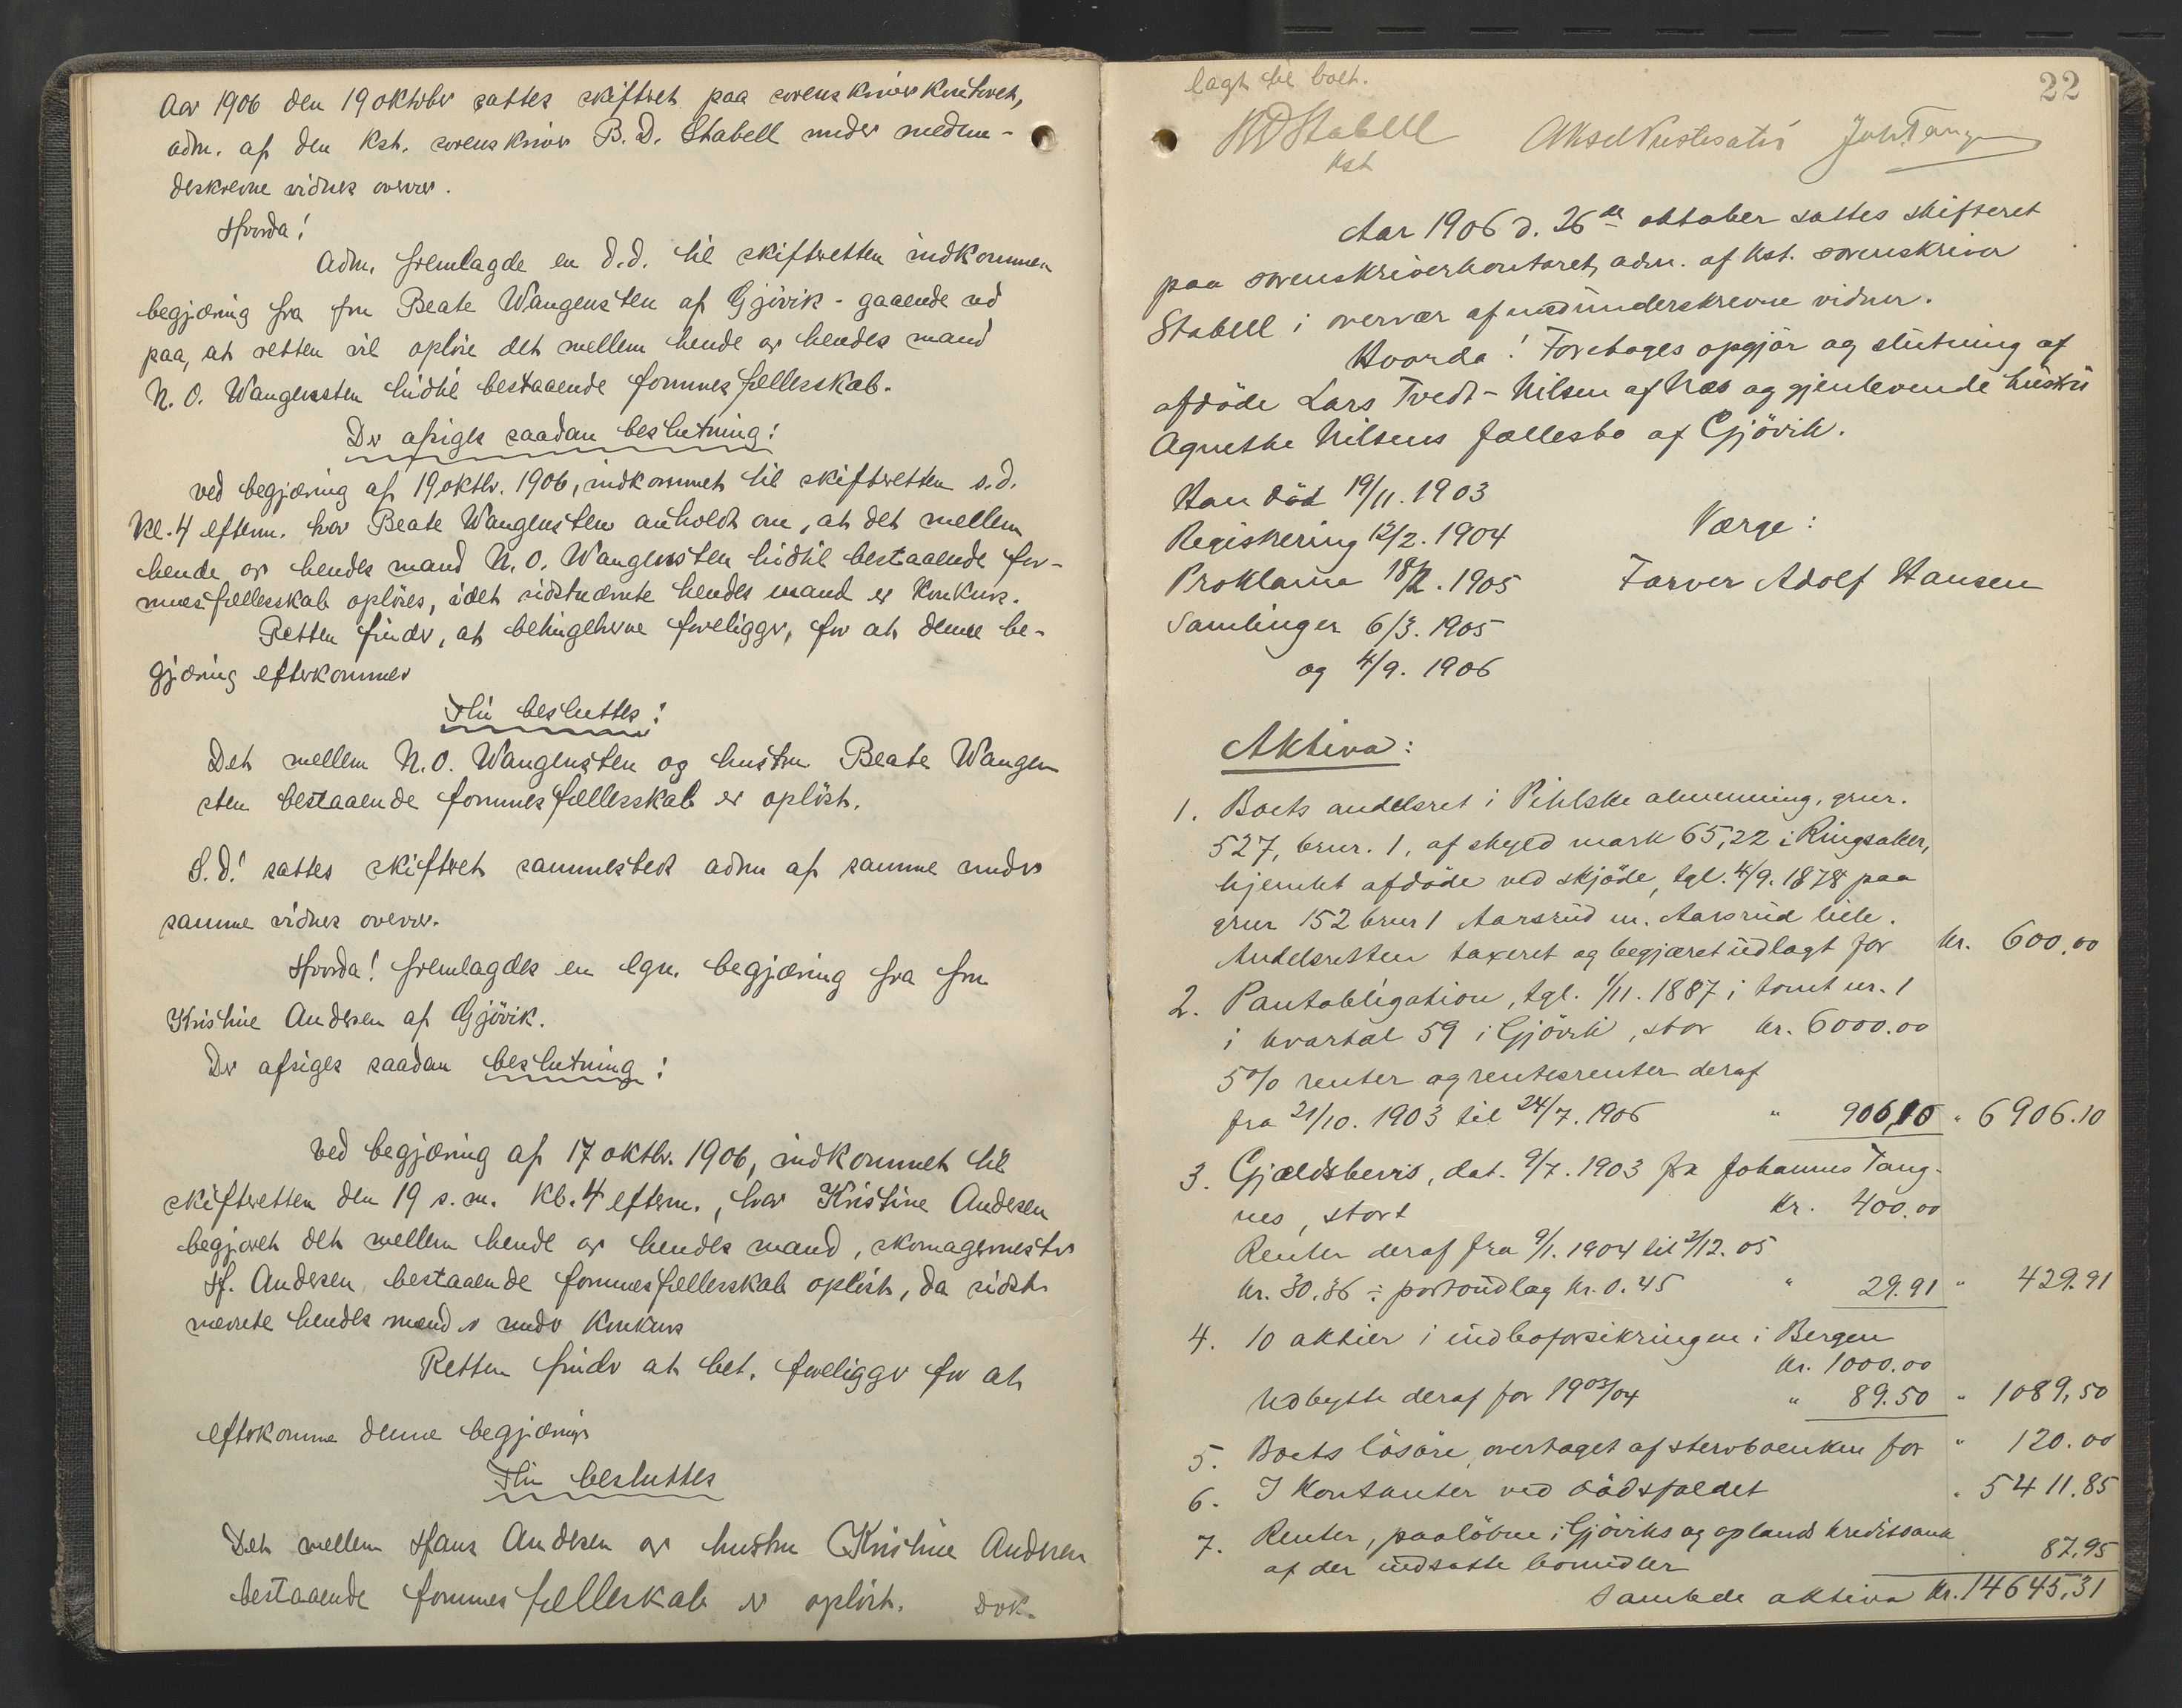 Aar 1906 den 19 oktober sattes skifteret paa sorenskriverkontoret,
adm. af den kst. sorenskriver B. D. Stabell under medun-
derskrevne vidners overvær.
Hvorda!
Adm. fremlagde en d.d. til skifteretten indkommen
begjæring fra fru Beate Wangensten af Gjövik - gaaende ud
paa, at retten vil oplöse det mellem hende og hendes mand
N. O. Wangensten hidtil bestaaende formuesfællesskab.
Der afsiges saadan beslutning:
ved begjæring af 19 oktbr. 1906, indkommet til skifteretten s.d.
kl. 4 efterm. har Beate Wangensten anholdt om, at det mellem
hende og hendes mand N. O. Wangensten hidtil bestaaende for-
muesfællesskab oplöses, idet sidstnævnte hendes mand er konkurs.
Retten finder, at betingelserne foreligger, for at denne be-
gjæring efterkommes
Thi besluttes:
Det mellem N. O. Wangensten og hustru Beate Wangen
sten bestaaende formuesfællesskab er oplöst.
S.D! sattes skifteret sammesteds adm af samme under
samme vidners overvær.
Hvorda! fremlagdes en lgn. begjæring fra fru
Kristine Andersen af Gjövik.
Der afsiges saadan beslutning:
Ved begjæring af 17 oktbr. 1906, indkommet til
skifteretten den 19 s.m. kl. 4 efterm., har Kristine Andersen
begjæret det mellem hende og hendes mand, skomagermester
H. Andersen, bestaaende formuesfællesskab oplöst, da sidst-
nævnte hendes mand er under konkurs
Retten finder at bet. foreligger for at
efterkomme denne begjæring
Thi besluttes
Det mellem Hans Andersen og hustru Kristine Andersen
bestaaende formuesfælleskab er oplöst. Dok.
22
lagt til boet.
BDStabell
kst
Joh. Tang
Aar 1906 d. 26de oktober sattes skifteret
paa sorenskriverkontoret, adm. af kst. sorenskriver
Stabell i overvær af medunderskrevne vidner.
Hvorda! Foretoges opgjör og slutning af
afdöde Lars Tvedt-Nilsen af Næs og gjenlevende hustru
Agnethe Nilsens fællesbo af Gjövik.
Han död 19/11. 1903
Registrering 12/2. 1904
Værge:
Proklama 18/2. 1905
Farver Adolf Hansen
Samlinger 6/3. 1905
og 4/9. 1906
Aktiva:
1. Boets andelsret i Pihlske almenning, gnr.
527, brnr. 1, af skyld mark 65,22 i Ringsaker,
hjemlet afdöde ved skjöde, tgl. 4/9. 1878 paa
gnr 152 brnr 1 Aarsrud m. Aarsrud lille.
Andelsretten taxeret og begjæret udlagt for kr. 600,00
2. Pantobligation, tgl. 1/11. 1887 i tomt nr. 1
i kvartal 59 i Gjövik, stor kr. 6000.00
5% renter og rentesrenter deraf
fra 21/10. 1903 til 24/7. 1906 " 906,10 " 6906.10
3. Gjældsbevis, dat. 9/7. 1903 fra Johannes Tang-
nes, stort kr. 400.00
Renter deraf fra 9/1. 1904 til 2/12. 05
kr. 30.36 ÷ portoudlag kr. 0.45 " 29.91 " 429.91
4. 10 aktier i indboforsikringen i Bergen
kr. 1000.00
Udbytte deraf for 1903/04 " 89.50 " 1089,50
5. Boets lösöre, overtaget af stervboenken for " 120.00
6. I kontanter ved dödsfaldet " 5411.85
7. Renter, paalöbne i Gjöviks og oplands kreditbank
af der indsatte bomidler " 87.95
Samlede aktiva kr. 14645,31